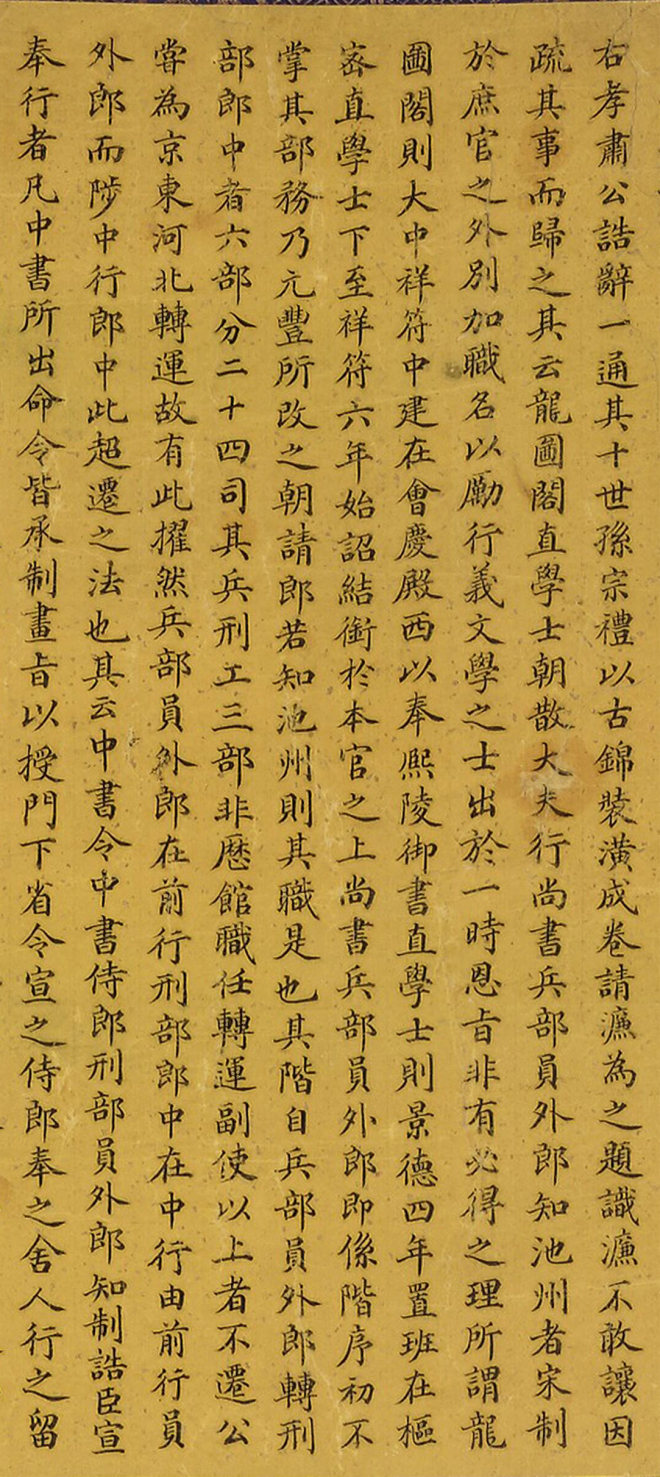 右孝肅公誥辭一通其十世孫宗禮以古錦裝潢成卷請濂為之題識濂不敢讓因
疏其事而歸之其云龍圖閣直學士朝散大夫行尚書兵部員外郎知池州者宋制
於庶官之外別加職名以勵行義文學之士出於一時恩旨非有必得之理所謂龍
圖閣則大中祥符中建在會慶殿西以奉熈陵御書直學士則景德四年置班在樞
宻直學士下至祥符六年始詔結銜於本官之上尚書兵部員外郎即係階序初不
掌其部務乃元豐所改之朝請郎若知池州則其職是也其階自兵部員外郎轉刑
部郎中者六部分二十四司其兵刑工三部非歷館職任轉運副使以上者不遷公
嘗為京東河北轉運故有此擢然兵部員外郎在前行刑部郎中在中行由前行員
外郎而陟中行郎中此超遷之法也其云中書令中書侍郎刑部員外郎知制誥臣宣
奉行者凡中書所出命令皆承制畫旨以授門下省令宣之侍郎奉之舍人行之留